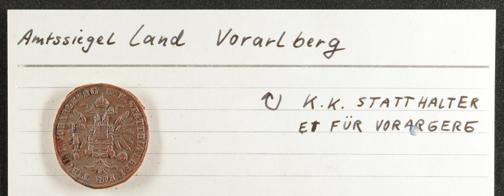 Amtssiegel Land Vorarlberg
K.K. STATTHALTER
ET FÜR VORARGERG